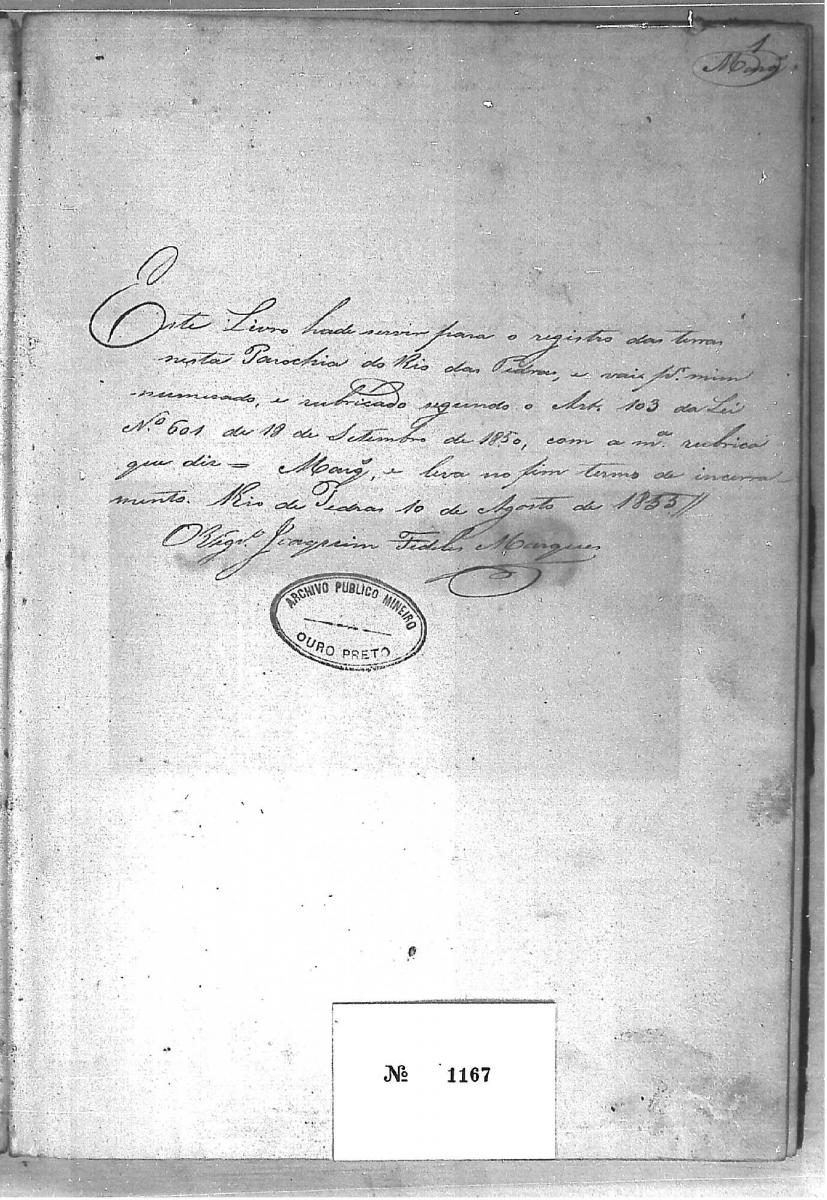 1
Marq.
Este Livro hade servir para o registro das terras
nesta Parochia do Rio das Pedras, e vai pr. mim
numerado, e rubricado segundo o Art. 103 da Lei
N.º 601 de 18 de Setembro de 1850, com a m.ª rubrica
que diz = Marq., e leva no fim termo de incerra-
mento. Rio de Pedras 10 de Agosto de 1855//
O Vigr.º Joaquim Fidelis Marques
ARCHIVO PUBLICO MINEIRO
OURO PRETO
Nº 1167